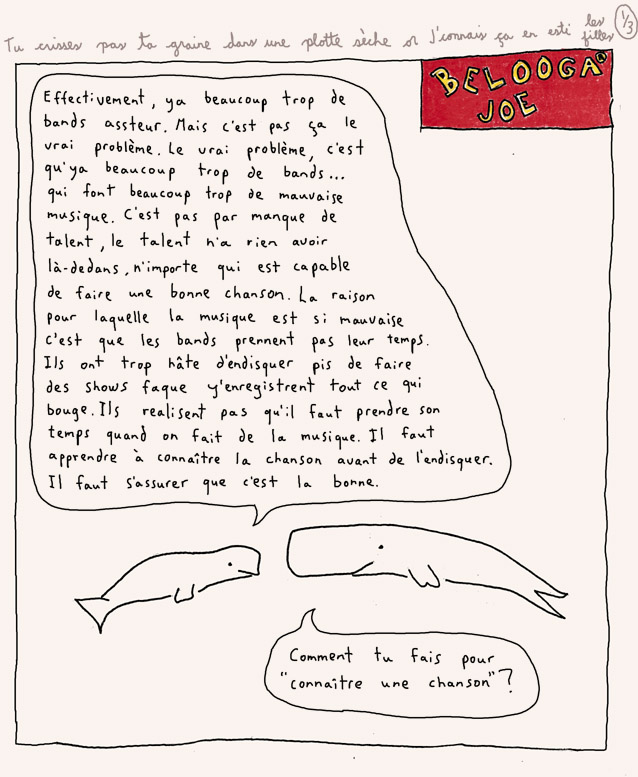 Tu crisses pas ta graine dans une plotte sèche or J'connais ça en esti les filles
1/3
BELOOGA
JOE
Effectivement, ya beaucoup trop de
bands assteur. Mais c'est pas ça le
vrai problème. Le vrai problème, c'est
qu'ya beaucoup trop de bands...
qui font beaucoup trop de mauvaise
musique. C'est pas par manque de
talent, le talent n'a rien avoir
là-dedans, n'importe qui est capable
de faire une bonne chanson. La raison
pour laquelle la musique est si mauvaise
c'est que les bands prennent pas leur temps.
Ils ont trop hâte d'endisquer pis de faire
des shows faque y'enregistrent tout ce qui
bouge. Ils realisent pas qu'il faut prendre son
temps quand on fait de la musique. Il faut
apprendre à connaître la chanson avant de l'endisquer.
Il faut s'assurer que c'est la bonne.
Comment tu fais pour
"connaître une chanson"?